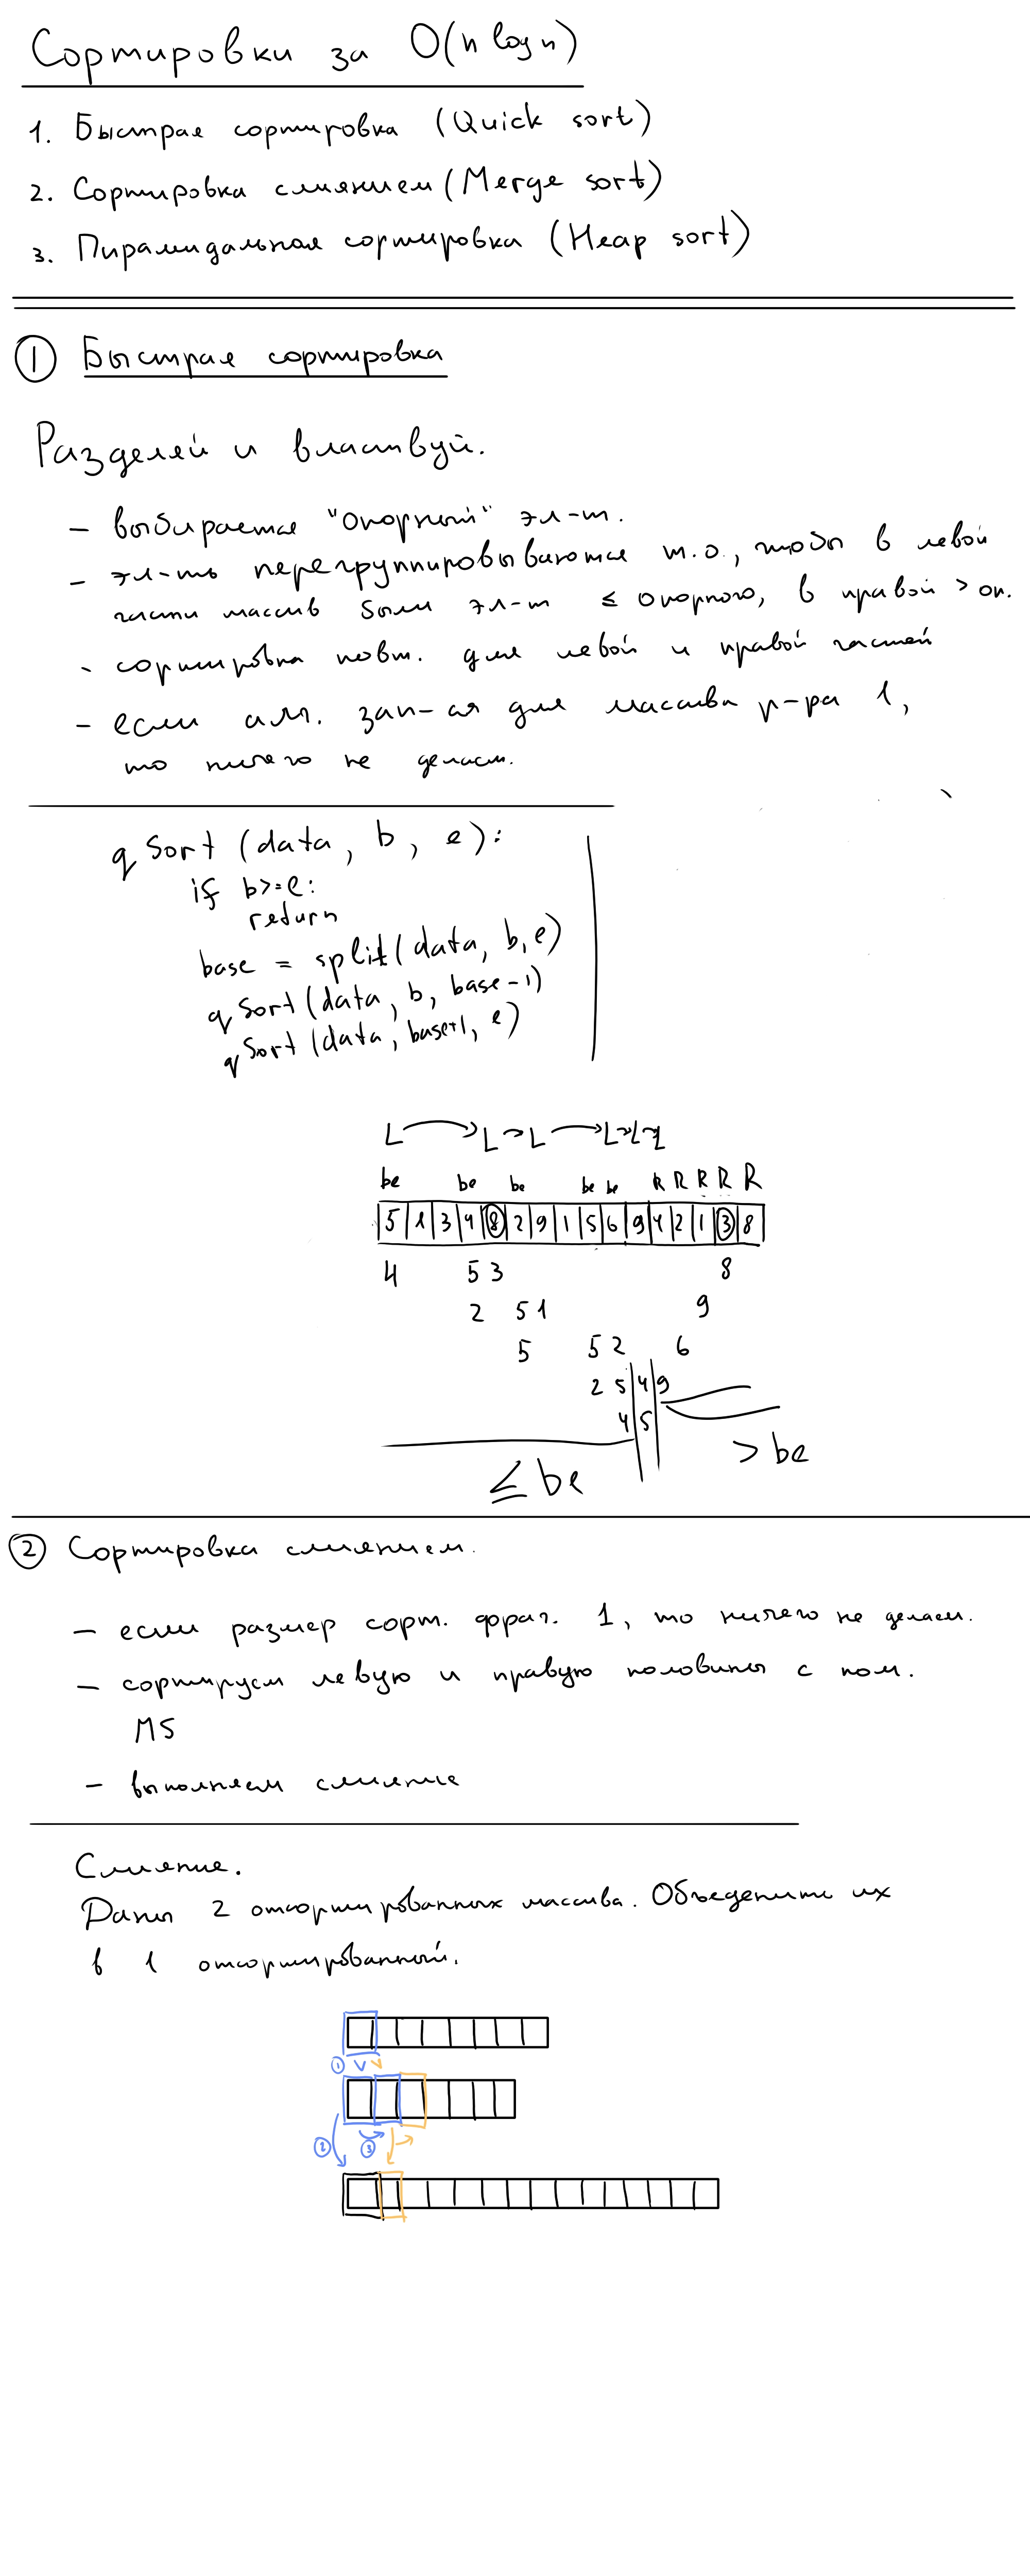 Сортировки за O(n log n)
1. Быстрая сортировка (Quick sort)
2. Сортировка слиянием (Merge sort)
3. Пирамидальная сортировка (Heap sort)
① Быстрая сортировка
Разделяй и властвуй.
- выбирается "опорный" эл-т.
- эл-ты перегруппировываются т.о., чтобы в левой
части массив были эл-т ≤ опорного, в правой > оп.
- сортировка повт. для левой и правой частей
- если алг. зап-ся для массива р-ра 1,
то ничего не делаем.
qSort (data, b, e):
if b>=e:
return
base = split(data, b, e)
qSort(data, b, base-1)
qSort(data, base+1, e)
L L L L L L
be be be be be R R R R R
5 1 3 4 8 2 9 1 5 6 9 4 2 1 3 8
4 5 3 8
2 5 1 9
5 5 2 6
2 5 4 9
4 5
≤ be > be
② Сортировка слиянием.
- если размер сорт. фраг. 1, то ничего не делаем.
- сортируем левую и правую половины с пом.
MS
- выполняем слияние
Слияние.
Даны 2 отсортированных массива. Объеденить их
в 1 отсортированный.
① v v
② ③